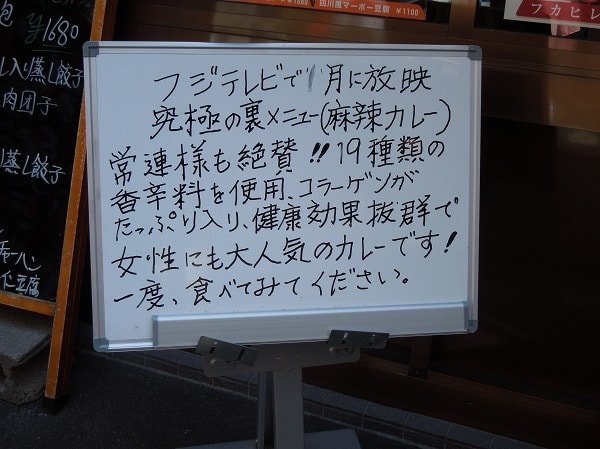 フジテレビで1月に放映
究極の裏メニュー(麻辣カレー)
常連様も絶賛!!19種類の
香辛料を使用、コラーゲンが
たっぷり入り、健康効果抜群で
女性にも大人気のカレーです!
一度、食べてみてください。
¥1680
し入り蒸し餃子
肉団子
蒸し餃子
チャーハン
仁豆腐
四川風マーボー豆腐 ¥1100
フカヒレ